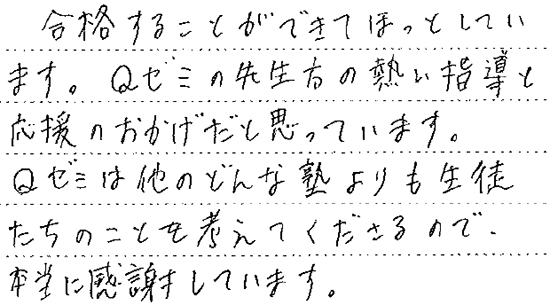 合格することができてほっとしてい
ます。Qゼミの先生方の熱い指導と
応援のおかげだと思っています。
Qゼミは他のどんな塾よりも生徒
たちのことを考えてくださるので、
本当に感謝しています。